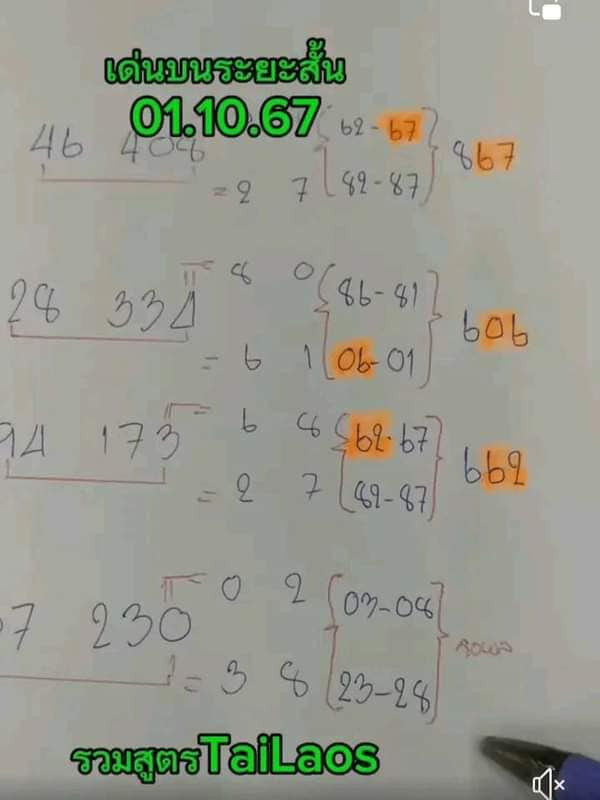 เด่นบนระยะสั้น
01.10.67
46 408
62-67
867
= 2 7
82-87
28 334
= 8 0
86-81
606
= 6 1
06-01
94 173
= 6 8
62-67
662
= 2 7
82-87
7 230
= 0 2
03-08
= 3 8
23-28
รวมสูตรTaiLaos